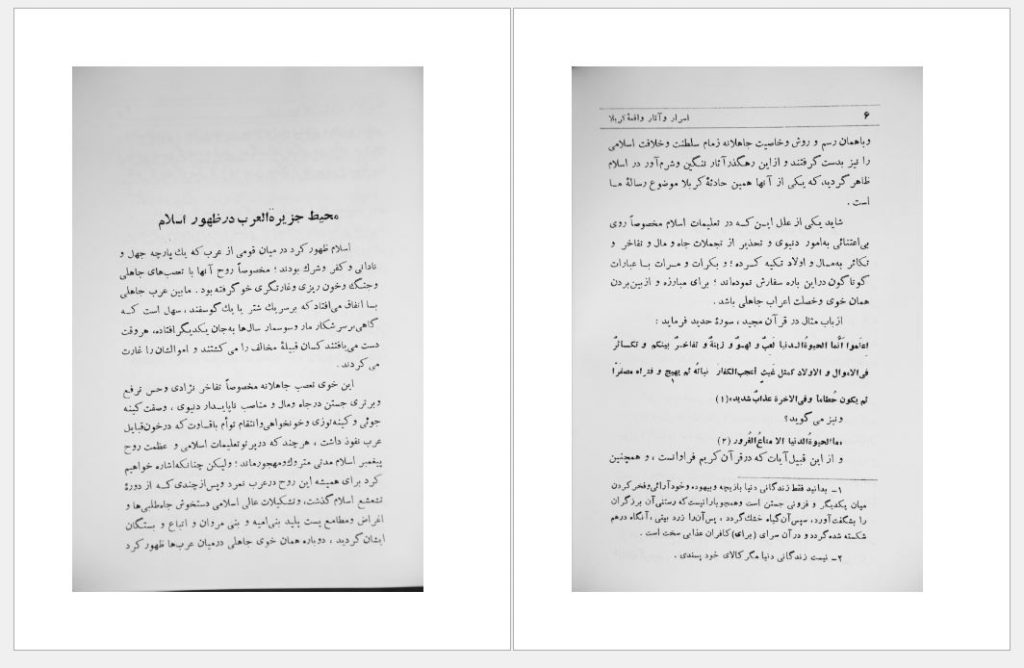 محیط جزیرةالعرب در ظهور اسلام
اسلام ظهور کرد در میان قومی از عرب که یك پارچه جهل و
نادانی و کفر و شرك بودند ؛ مخصوصاً روح آنها با تعصب‌های جاهلی
وجنگ و خون ریزی و غارتگری خو گرفته بود . مابین عرب جاهلی
بسا اتفاق می‌افتاد که برسر یك شتر یا یك گوسفند ، سهل است کـه
گاهی برسر شکار مار و سوسمار سال‌ها به‌جان یکدیگر افتاده، هر وقت
دست می‌یافتند کسان قبیلهٔ مخالف را می‌کشتند و اموالشان را غارت
می‌کردند .
این خوی تعصب جاهلانه مخصوصاً تفاخر نژادی وحس ترفع
و برتری جستن در جاه ومال و مناصب ناپایـدار دنیوی ، وصفت کینه
جوئی و کینه‌توزی و خونخواهی وانتقام توأم باقساوت که درخون قبایل
عرب نفوذ داشت ، هر چند که در پرتو تعلیمات اسلامی و عظمت روح
پیغمبر اسلام مدتی متروك و مهجور ماند ؛ ولیکن چنانکه اشاره خواهیم
کرد برای همیشه این روح در عرب نمرد و پس از چندی کـه از دورهٔ
تشعشع اسلام گذشت، و تشکیلات عالی اسلامی دستخوش جاه‌طلبی‌ها و
اغراض ومطامع پست پلید بنی‌امیه و بنی مروان و اتباع و بستگان
ایشان گردید ، دوباره همان خوی جاهلی درمیان عرب‌ها ظهور کرد
۶
اسرار و آثار واقعهٔ کربلا
و با همان رسم و روش و خاصیت جاهلانه زمام سلطنت و خلافت اسلامی
را نیز بدست گرفتند و از این رهگذر آثار ننگین وشرم‌آور در اسلام
ظاهر گردید که یکی از آنها همین حادثهٔ کربلا موضوع رسالهٔ مـا
است .
شاید یکی از علل ایـن کـه در تعلیمات اسلام مخصوصاً روی
بی‌اعتنائی به‌امور دنیوی و تحذیر از تجملات جاه و مال و تفاخر و
تکاثر به‌مـال و اولاد تکیه کـرده ؛ و بکرات و مـرات بـا عبارات
گوناگون در این باره سفارش نموده‌اند ؛ برای مبارزه و از بین بردن
همان خوی و خصلت اعراب جاهلی باشد .
از باب مثال در قرآن مجید ، سورهٔ حدید فرماید :
اعلموا أنَّما الحیوةُ الـدنیا لعبٌ و لهوٌ و زینةٌ و تفاخـرٌ بینکم و تکـاثرٌ
فی‌الاموال و الاولاد کمثل غیثٍ أعجب‌الکفارَ نباتُه ثم یهیج و فتراه مصفراً
ثم یکون حُطاماً و فی‌الاخرة عذابٌ شدید» (۱)
و نیز می‌گوید؟
«ما الحیوةُ الدنیا الا متاعُ الغُرور (۲)
و از این قبیل آیات که در قرآن کریم فراوانست ، و همچنین
۱ـ بدانید فقط زندگانی دنیا بازیچه و بیهوده و خودآرائی و فخر کردن
میان یکدیگر و فزونی جستن است و همچو بارانیست که رستنی آن برزگران
را بشگفت آورد، سپس آن گیاه خشك گردد ، پس آن‌را زرد بینی ، آنگاه درهم
شکسته شده گردد و در آن سرای (برای) کافران عذابی سخت است .
۲ـ نیست زندگانی دنیا مگر کالای خود پسندی .